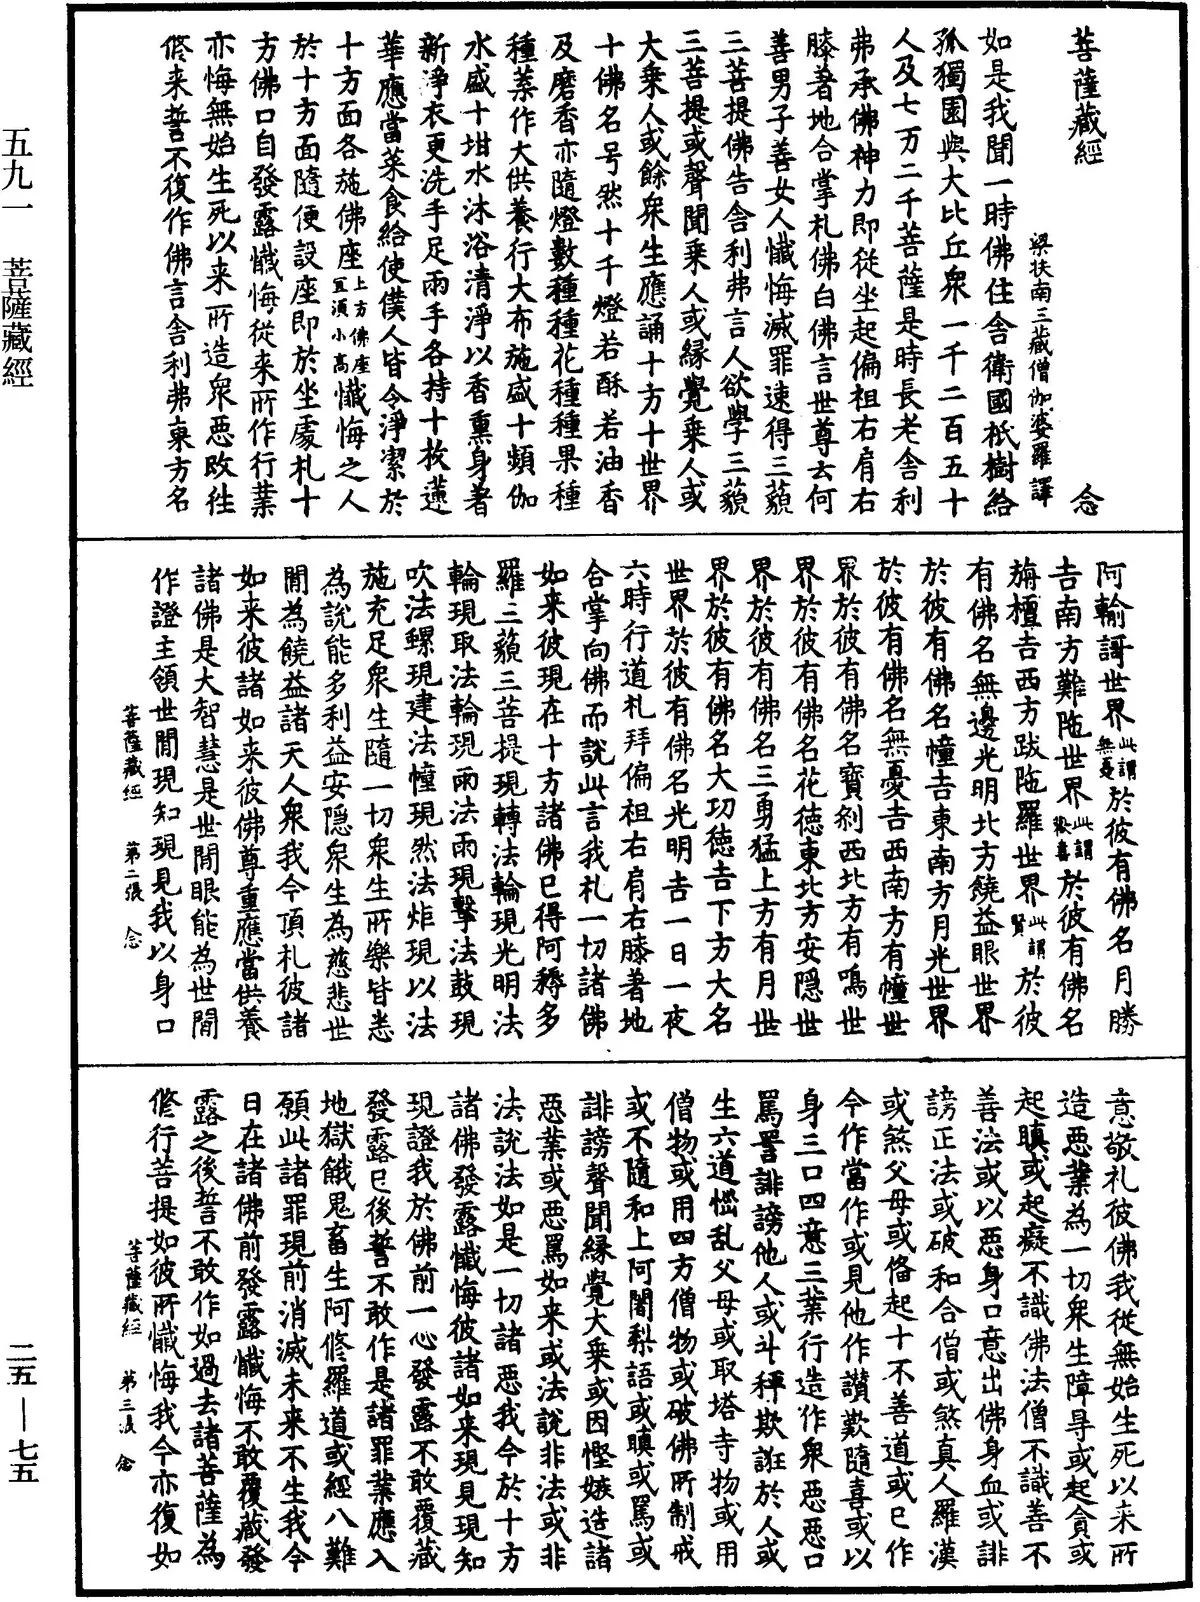 菩薩藏經　念
梁扶南三藏僧伽婆羅譯
如是我聞一時佛住舍衛國祇樹給
孤獨園與大比丘衆一千二百五十
人及七万二千菩薩是時長老舍利
弗承佛神力即從坐起偏袒右肩右
膝著地合掌札佛白佛言世尊云何
善男子善女人懺悔滅罪速得三藐
三菩提佛告舍利弗言人欲學三藐
三菩提或聲聞乘人或緣覺乘人或
大乘人或餘衆生應誦十方十世界
十佛名号然十千燈若酥若油香
及磨香亦隨燈數種種花種種果種
種菜作大供養行大布施盛十頻伽
水盛十坩水沐浴清淨以香熏身著
新淨衣更洗手足兩手各持十枚蓮
華應當菜食給使僕人皆令淨潔於
十方面各施佛座上方佛座冝須小高懺悔之人
於十方面隨便設座即於坐處札十
方佛口自發露懺悔從来所作行業
亦悔無始生死以来所造衆惡改往
修来誓不復作佛言舍利弗東方名
阿輸訶世界此謂無憂於彼有佛名月勝
吉南方難陁世界此謂歡喜於彼有佛名
旃檀吉西方跋陁羅世界此謂賢於彼
有佛名無邊光明北方饒益眼世界
於彼有佛名幢吉東南方月光世界
於彼有佛名無憂吉西南方有幢世
界於彼有佛名寶刹西北方有鳴世
界於彼有佛名花徳東北方安隱世
界於彼有佛名三勇猛上方有月世
界於彼有佛名大功徳吉下方大名
世界於彼有佛名光明吉一日一夜
六時行道札拜偏袒右肩右膝著地
合掌向佛而說此言我札一切諸佛
如来彼現在十方諸佛已得阿耨多
羅三藐三菩提現轉法輪現光明法
輪現取法輪現雨法雨現擊法鼓現
吹法螺現建法幢現然法炬現以法
施充足衆生隨一切衆生所樂皆悉
為說能多利益安隱衆生為慈悲世
間為饒益諸天人衆我今頂札彼諸
如来彼諸如来彼佛尊重應當供養
諸佛是大智慧是世間眼能為世間
作證主領世間現知現見我以身口
菩薩藏經　第二張　念
意敬礼彼佛我從無始生死以来所
造惡業為一切衆生障㝵或起貪或
起瞋或起癡不識佛法僧不識善不
善法或以惡身口意出佛身血或誹
謗正法或破和合僧或煞真人羅漢
或煞父母或俻起十不善道或已作
今作當作或見他作讃歎隨喜或以
身三口四意三業行造作衆惡惡口
罵詈誹謗他人或斗秤欺誑於人或
生六道惱乱父母或取塔寺物或用
僧物或用四方僧物或破佛所制戒
或不隨和上阿闍梨語或瞋或罵或
誹謗聲聞緣覺大乘或因慳嫉造諸
惡業或惡罵如来或法說非法或非
法說法如是一切諸惡我今於十方
諸佛發露懺悔彼諸如来現見現知
現證我於佛前一心發露不敢覆藏
發露已後誓不敢作是諸罪業應入
地獄餓鬼畜生阿修羅道或經八難
願此諸罪現前消滅未来不生我今
日在諸佛前發露懺悔不敢覆藏發
露之後誓不敢作如過去諸菩薩為
修行菩提如彼所懺悔我今亦復如
菩薩藏經　第三張　念
五九一　菩薩藏經
二五—七五